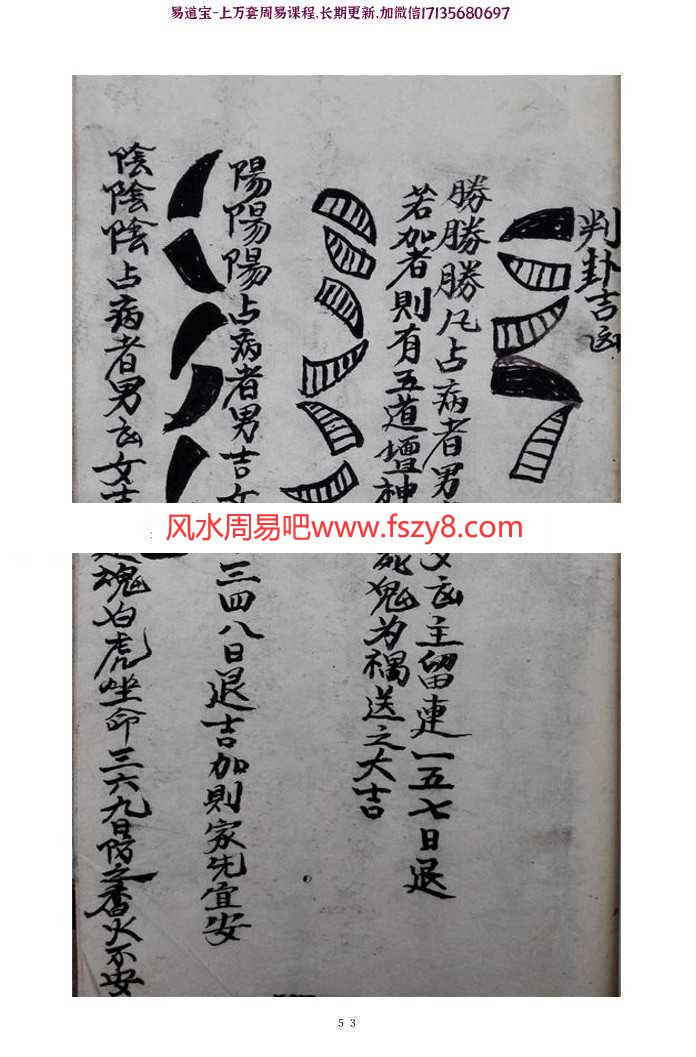 易道宝-上万套周易课程,长期更新,加微信17135680697
判卦吉凶
勝勝勝凡占病者男
女凶主留連一五七日退
若加者則有五道壇神
鬼为禍送之大吉
陽陽陽占病者男吉女
三四八日退吉加則家先宜安
陰陰陰占病者男凶女吉
魂白虎坐命三六九日防之香火不安
风水周易吧www.fszy8.com
53